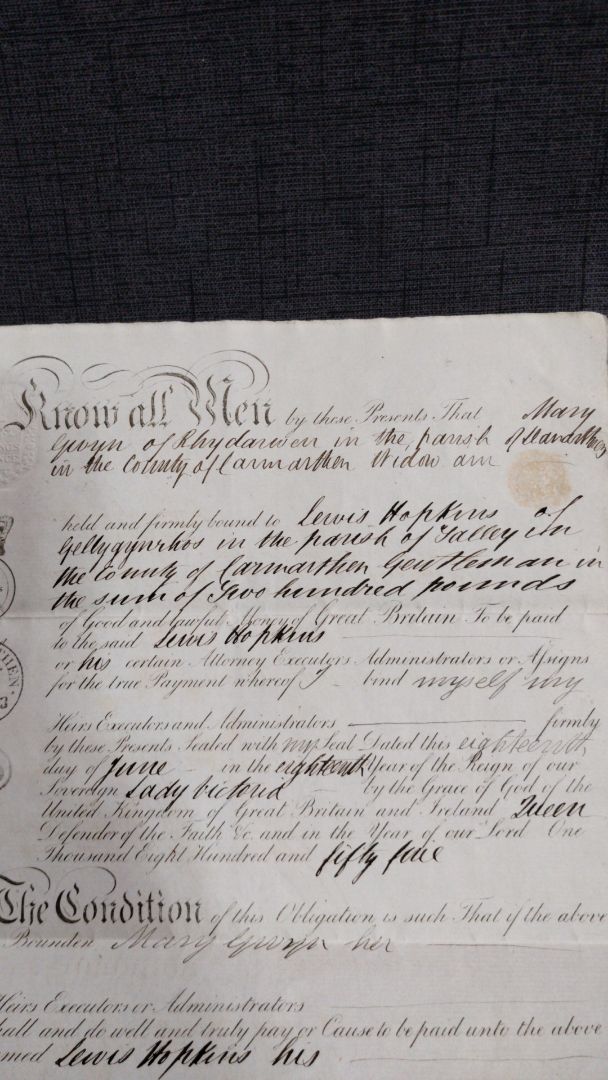 Know all Men by these Presents That Mary
Gwyn of Rhydarwen in the parish of
in the County of Carmarthen Widow am
held and firmly bound to Lewis Hopkins of
in the parish of Talley in
the County of Carmarthen Gentleman in
the sum of Two hundred pounds
of Good and lawful Money of Great Britain To be paid
to the said Lewis Hopkins
or his certain Attorney Executors Administrators or Assigns
for the true Payment whereof I bind myself my
Heirs Executors and Administrators firmly
by these Presents Sealed with my Seal Dated this eighteenth
day of June in the eighteenth Year of the Reign of our
Sovereign Lady Victoria by the Grace of God of the
United Kingdom of Great Britain and Ireland Queen
Defender of the Faith &c and in the Year of our Lord One
Thousand Eight Hundred and fifty five
The Condition of this Obligation is such That if the above
Bounden Mary Gwyn her
Heirs Executors or Administrators
hall and do well and truly pay or Cause to be paid unto the above
med Lewis Hopkins his
CHEN.
3